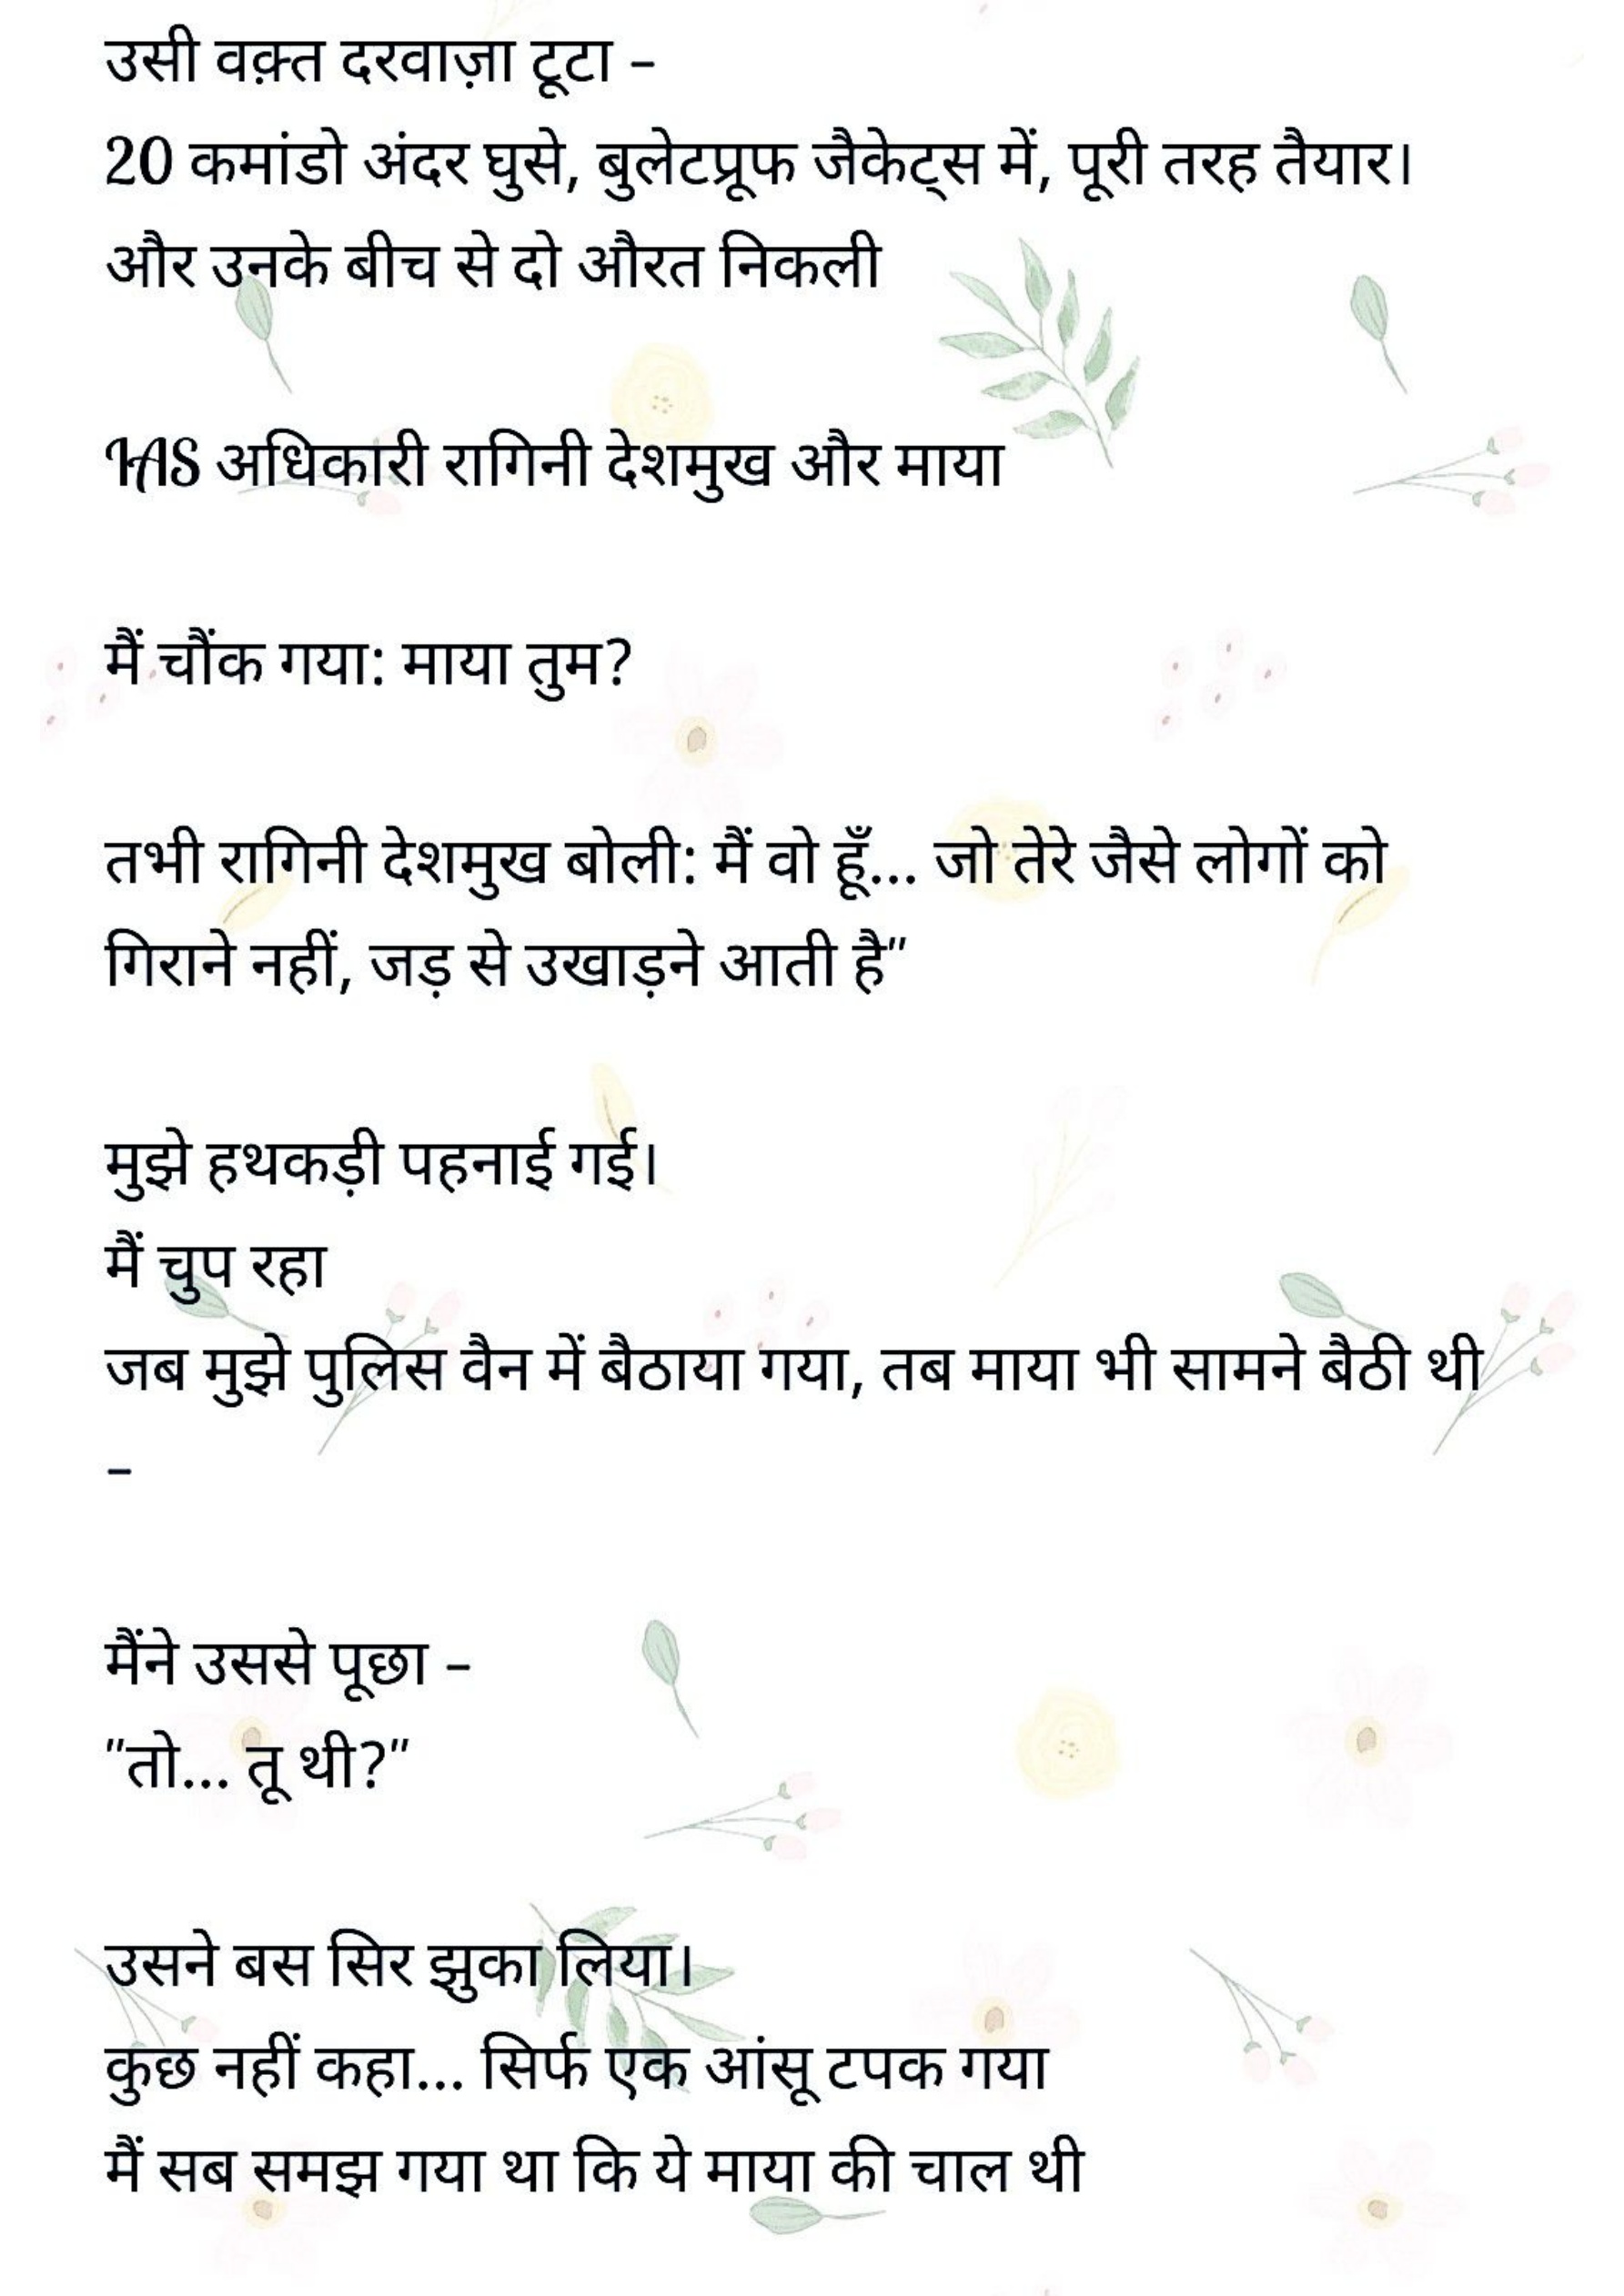 उसी वक़्त दरवाज़ा टूटा –
20 कमांडो अंदर घुसे, बुलेटप्रूफ जैकेट्स में, पूरी तरह तैयार।
और उनके बीच से दो औरत निकली
IAS अधिकारी रागिनी देशमुख और माया
मैं चौंक गया: माया तुम?
तभी रागिनी देशमुख बोली: मैं वो हूँ... जो तेरे जैसे लोगों को
गिराने नहीं, जड़ से उखाड़ने आती है"
मुझे हथकड़ी पहनाई गई।
मैं चुप रहा
जब मुझे पुलिस वैन में बैठाया गया, तब माया भी सामने बैठी थी
–
मैंने उससे पूछा –
"तो... तू थी?"
उसने बस सिर झुका लिया।
कुछ नहीं कहा... सिर्फ एक आंसू टपक गया
मैं सब समझ गया था कि ये माया की चाल थी